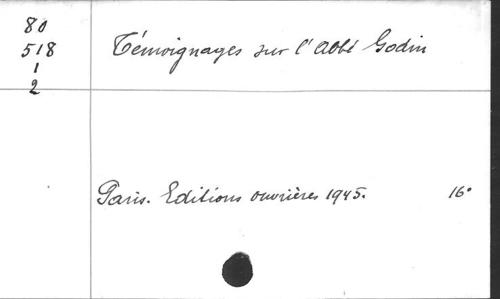 80
518
1
2
Témoignages sur l'Abbé Godin
Paris. Editions ouvrières 1945. 16°